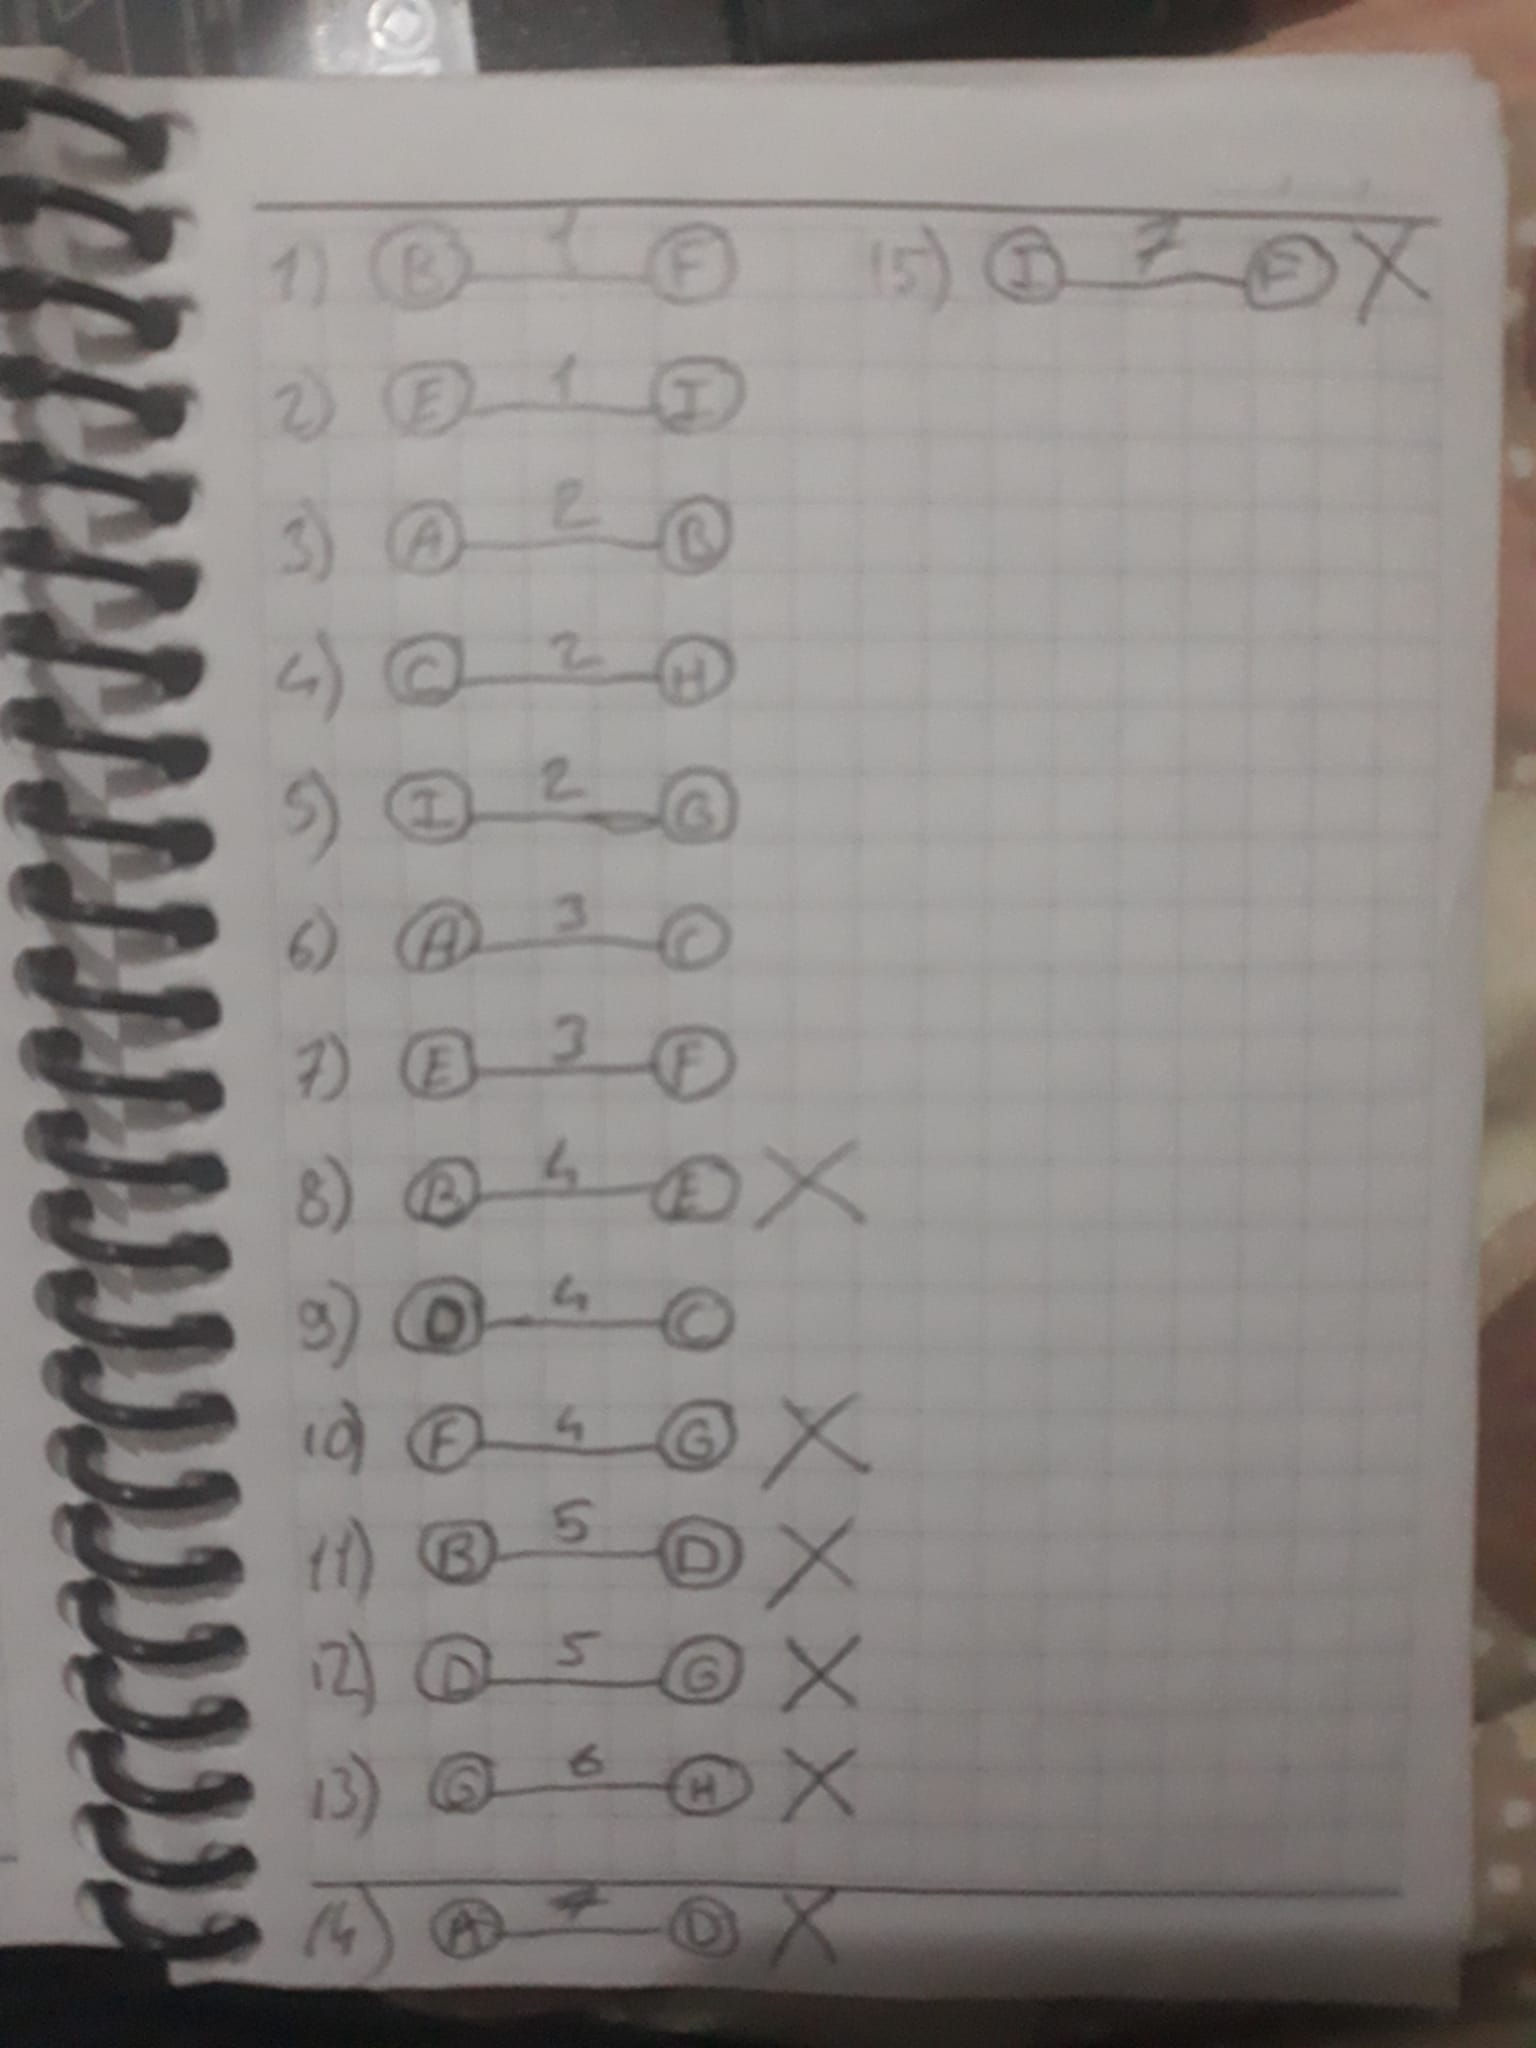 1) B 1 F
2) E 1 I
3) A 2 B
4) C 2 H
5) I 2 G
6) A 3 C
7) E 3 F
8) B 4 E X
9) D 4 C
10) F 4 G X
11) B 5 D X
12) D 5 G X
13) G 6 H X
14) A 7 D X
15) I 7 F X